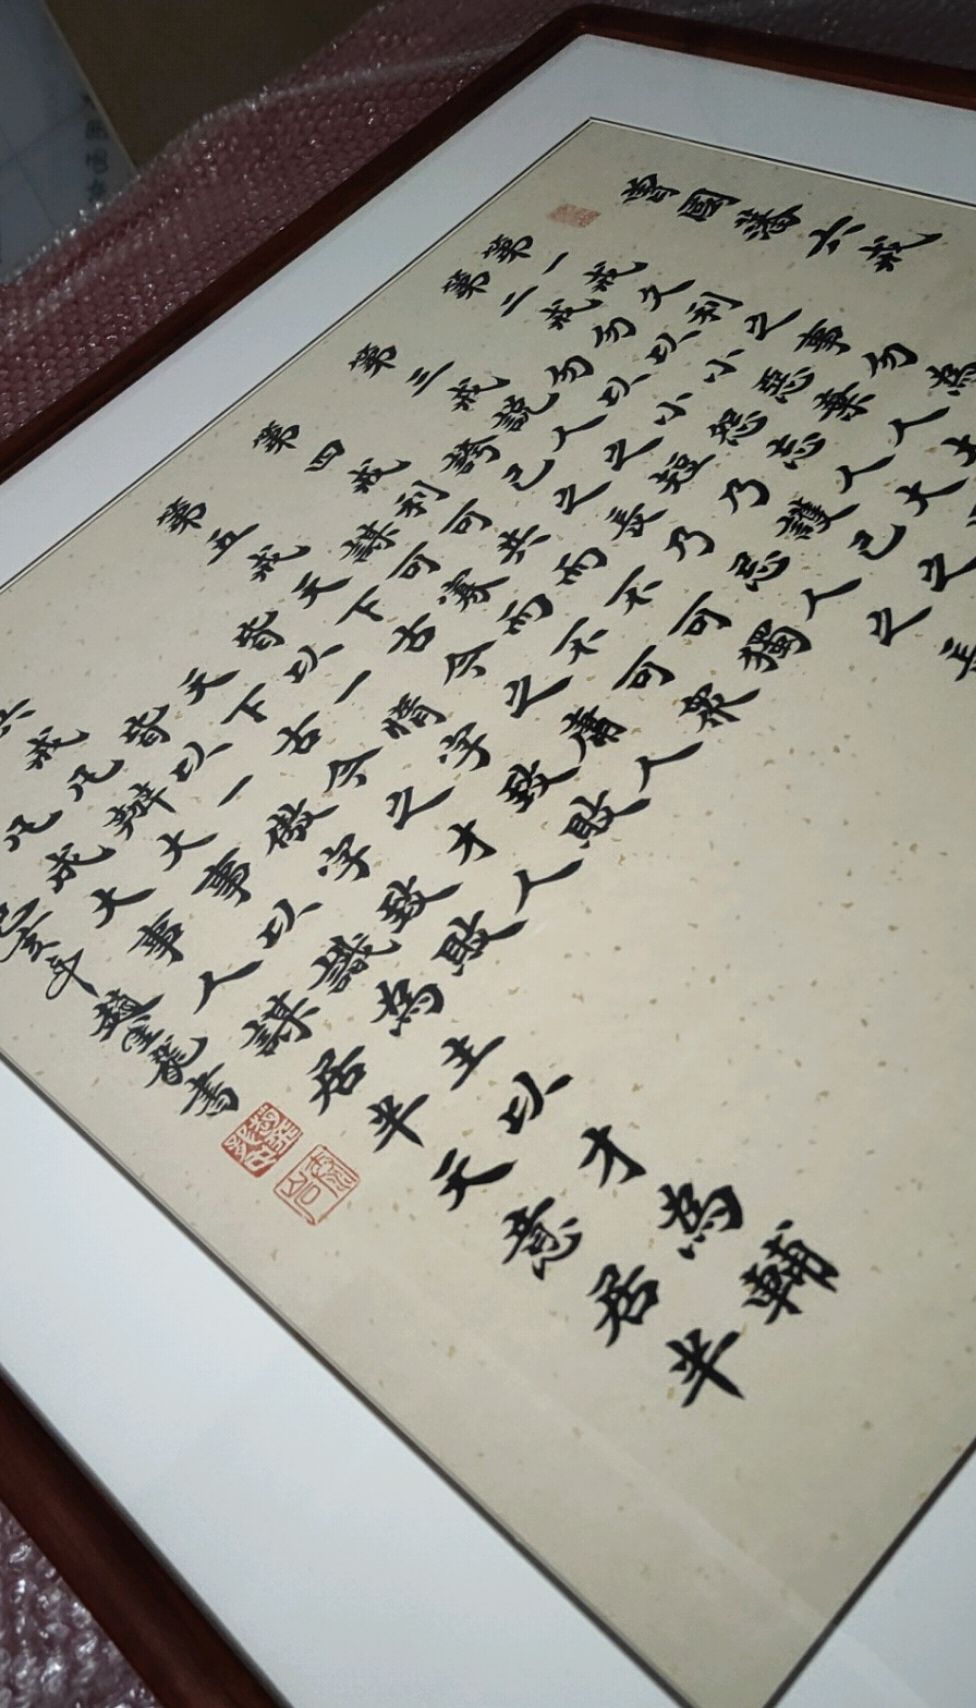 曾國藩六戒
第一戒久利之事勿為
第二戒勿以小惡棄人大
勿以小怨忘人大
第三戒說人之短乃護己之
誇己之長乃忌人之
第四戒利可共而不可獨
謀可寡而不可眾
第五戒天下古今之庸人
皆以一惰字致敗
天下古今之才人
皆以一傲字致敗
六戒凡辦大事以識為主以才為輔
凡成大事人謀居半天意居半
己亥年趙龍書